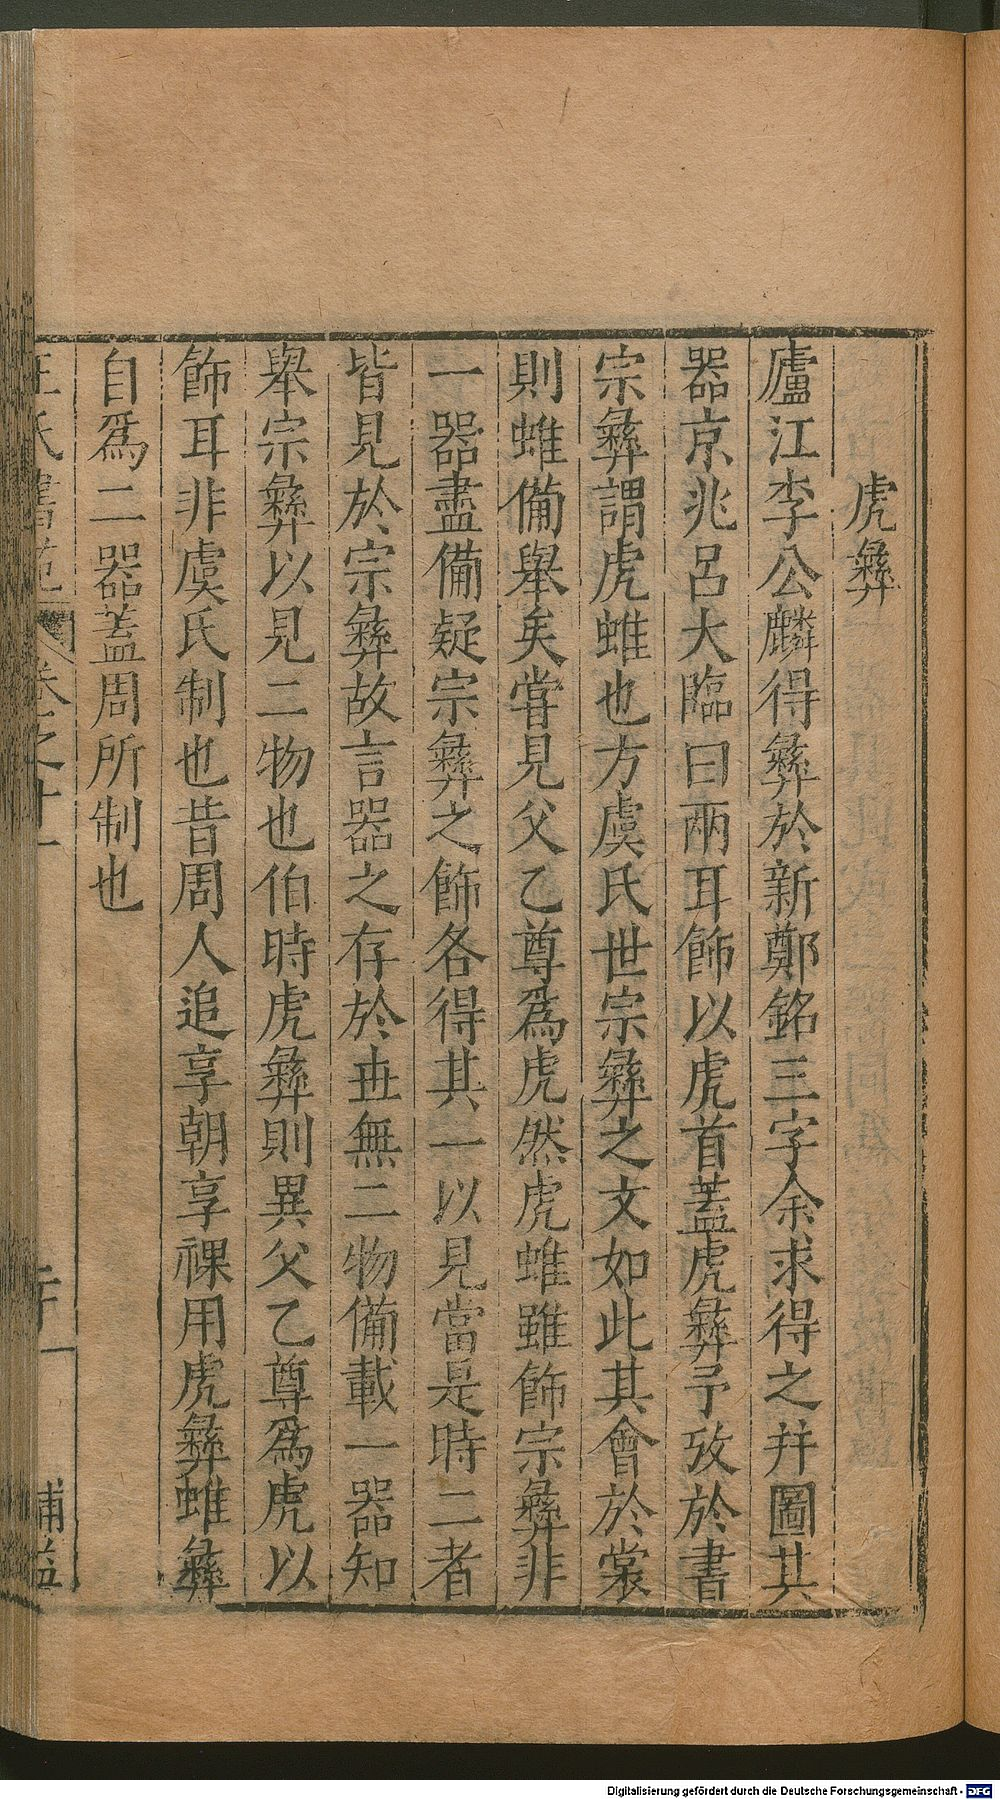 虎彝
廬江李公麟得彝於新鄭銘三字余求得之并圖其
器京兆呂大臨曰兩耳飾以虎首蓋虎彝予攷於書
宗彝謂虎蜼也方虞氏世宗彝之文如此其會於裳
則蜼備舉矣嘗見父乙尊為虎然虎蜼雖飾宗彝非
一器盡備疑宗彝之飾各得其一以見當是時二者
皆見於宗彝故言器之存於世無二物備載一器知
舉宗彝以見二物也伯時虎彝則異父乙尊為虎以
飾耳非虞氏制也昔周人追享朝享祼用虎彝蜼彝
自為二器蓋周所制也
王氏書苑 卷之十一
補益
Digitalisierung gefördert durch die Deutsche Forschungsgemeinschaft - DFG